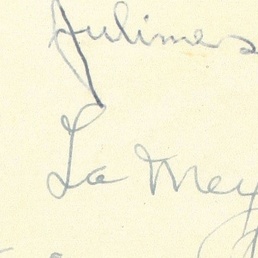 Julimes
La Mey